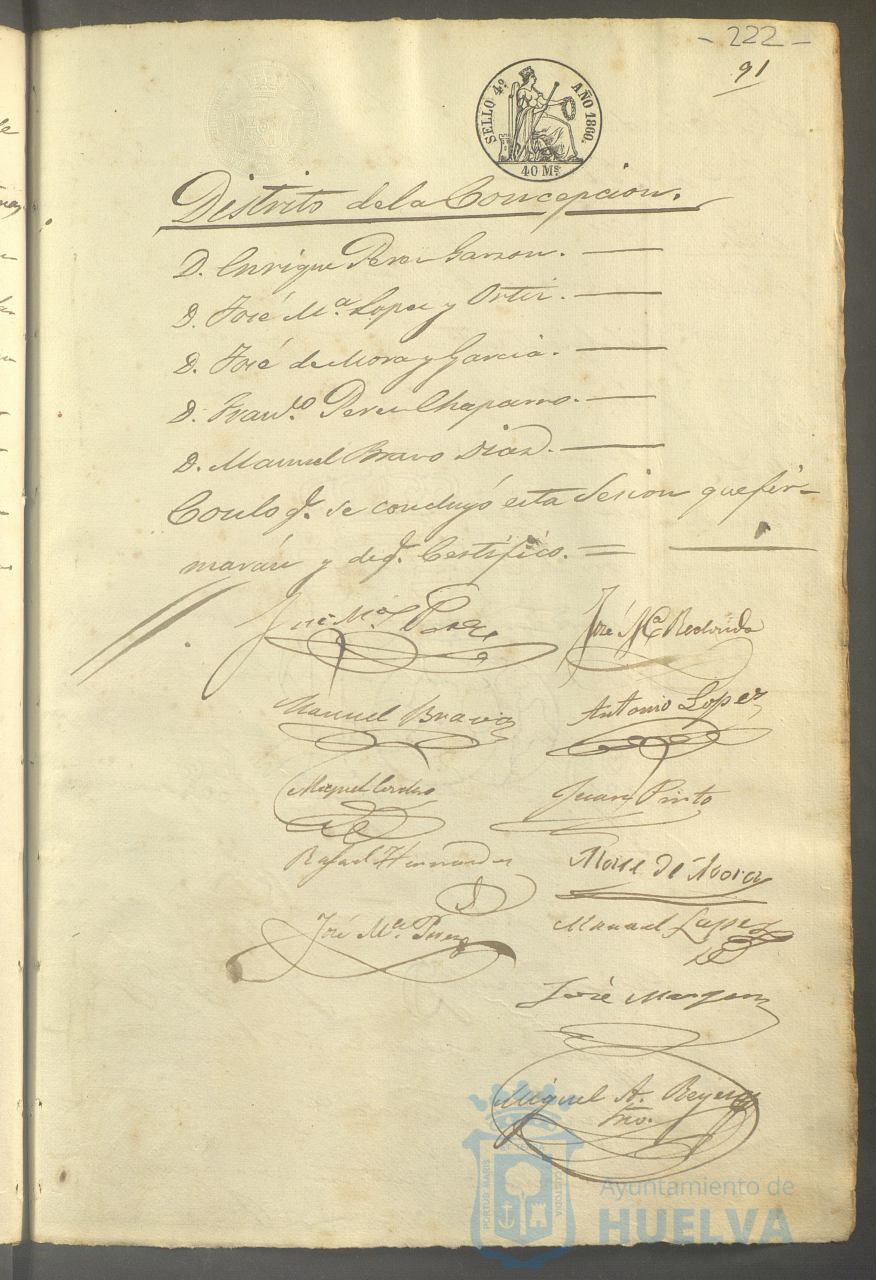 - 222 -
91
SELLO 4º AÑO 1860.
40 Ms.
Distrito de la Concepcion.
D. Enrique Perez Garzon.
D. José Mª. Lopez y Ortiz.
D. José de Mora y Garcia.
D. Franco. Perez Chaparro.
D. Manuel Bravo Diaz.
Con lo q. se concluyó esta Sesion que fir-
marán y de q. Certifico.
José Mª Perez
José Mª Redondo
Manuel Bravo
Antonio Lopez
Miguel Cordero
Juan Pinto
Rafael Hernandez
de Mora
José Mª. Perez
Manuel Lopez
José
Miguel A. Reyes
Srio.
PORTUS MARIS
CUSTODIA
Ayuntamiento de
HUELVA